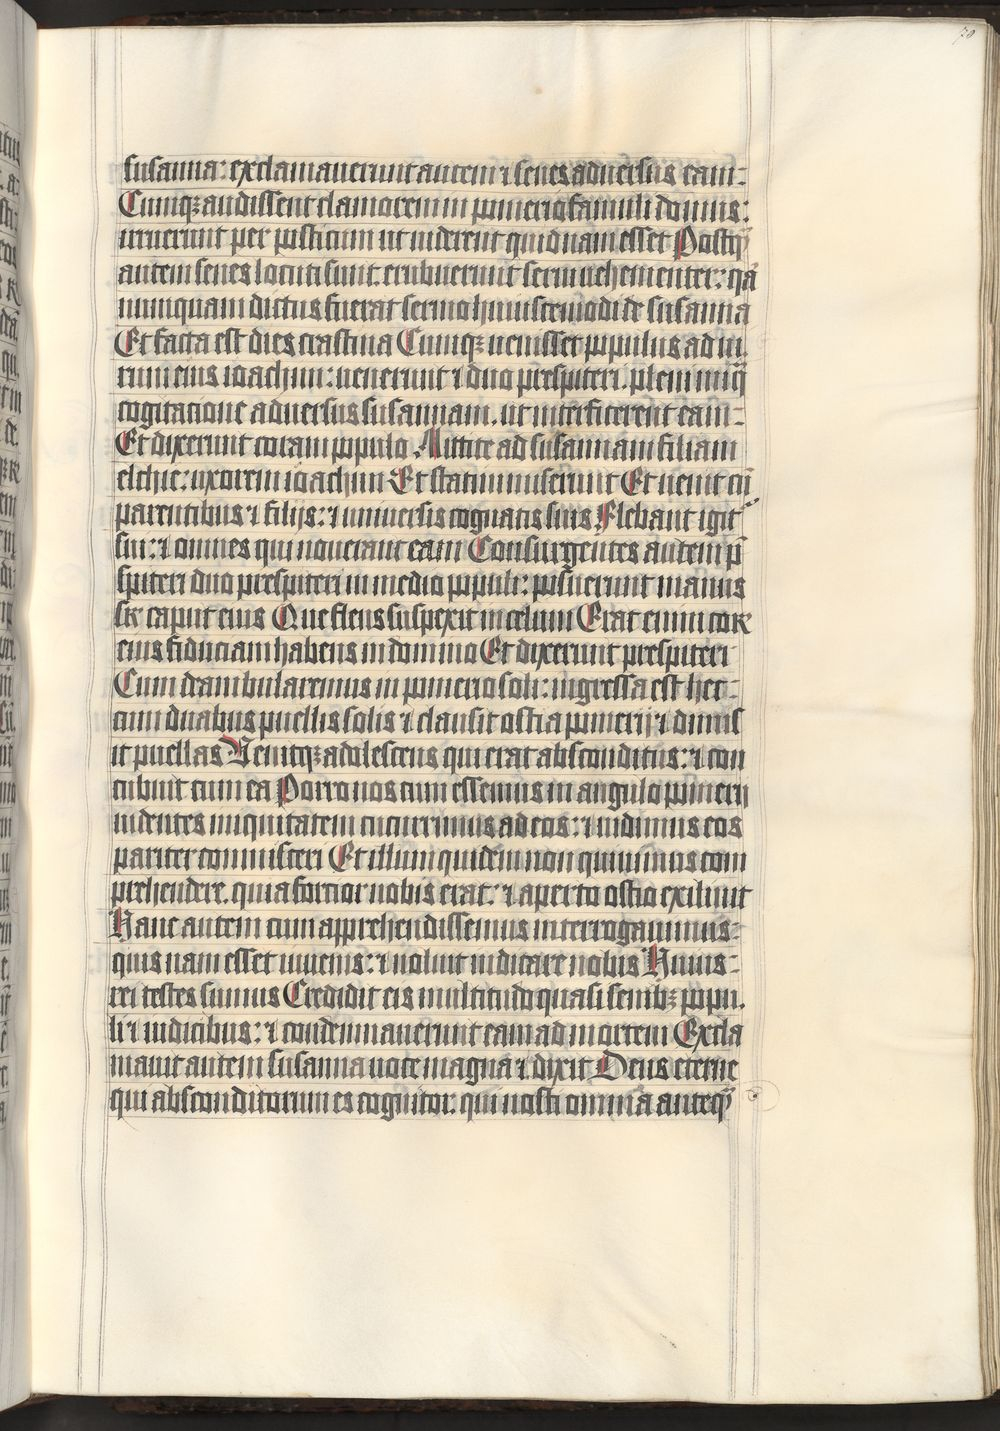 70
susanna: exclamaverunt autem ⁊ senes adversus eam:
Cumqꝫ audissent clamorem in pomerio famuli domus:
irruerunt per posticum ut viderent quidnam esset Postqᷓ
autem senes locuti sunt. erubuerunt servi vehementer: qꝛā
numquam dictus fuerat sermo huiuscemodi de susanna
Et facta est dies crastina Cumqꝫ venisset populus ad vi
rum eius ioachim: venerunt ⁊ duo prespiteri. pleni iniqᷓ
cogitacione adversus susannam. ut interficerent eam:
Et dixerunt coram populo Mittite ad susannam filiam
elchie: uxorem ioachim Et statim miserunt Et venit cū
parentibus ⁊ filijs: ⁊ universis cognatis suis Flebant igit᷑
sui: ⁊ omnes qui noverant eam Consurgentes autem p̄
spiteri duo prespiteri in medio populi: posuerunt manus
suꝑ caput eius Que flens suspexit in celum Erat enim cor
eius fiduciam habens in domino Et dixerunt prespiteri
Cum deambularemus in pomerio soli: ingressa est hec:
cum duabus puellis solis ⁊ clausit ostia pomerij ⁊ dimis
it puellas Venitqꝫ adolescens qui erat absconditus: ⁊ con
cubuit cum ea Porro nos cum essemus in angulo pomerij
videntes iniquitatem cucurrimus ad eos: ⁊ vidimus eos
pariter commisceri Et illum quidem non quivimus com
prehendere. quia fortior nobis erat: ⁊ aperto ostio exilivit
Hanc autem cum apprehendissemus interrogavimus:
quisnam esset iuvenis: ⁊ noluit indicare nobis Huius:
rei testes sumus Credidit eis multitudo quasi senibꝫ popu.
li ⁊ iudicibus: ⁊ condemnaverunt eam ad mortem Excla
mavit autem susanna voce magna ⁊ dixit Deus eterne
qui absconditorum es cognitor. qui nosti omnia anteqᷓ